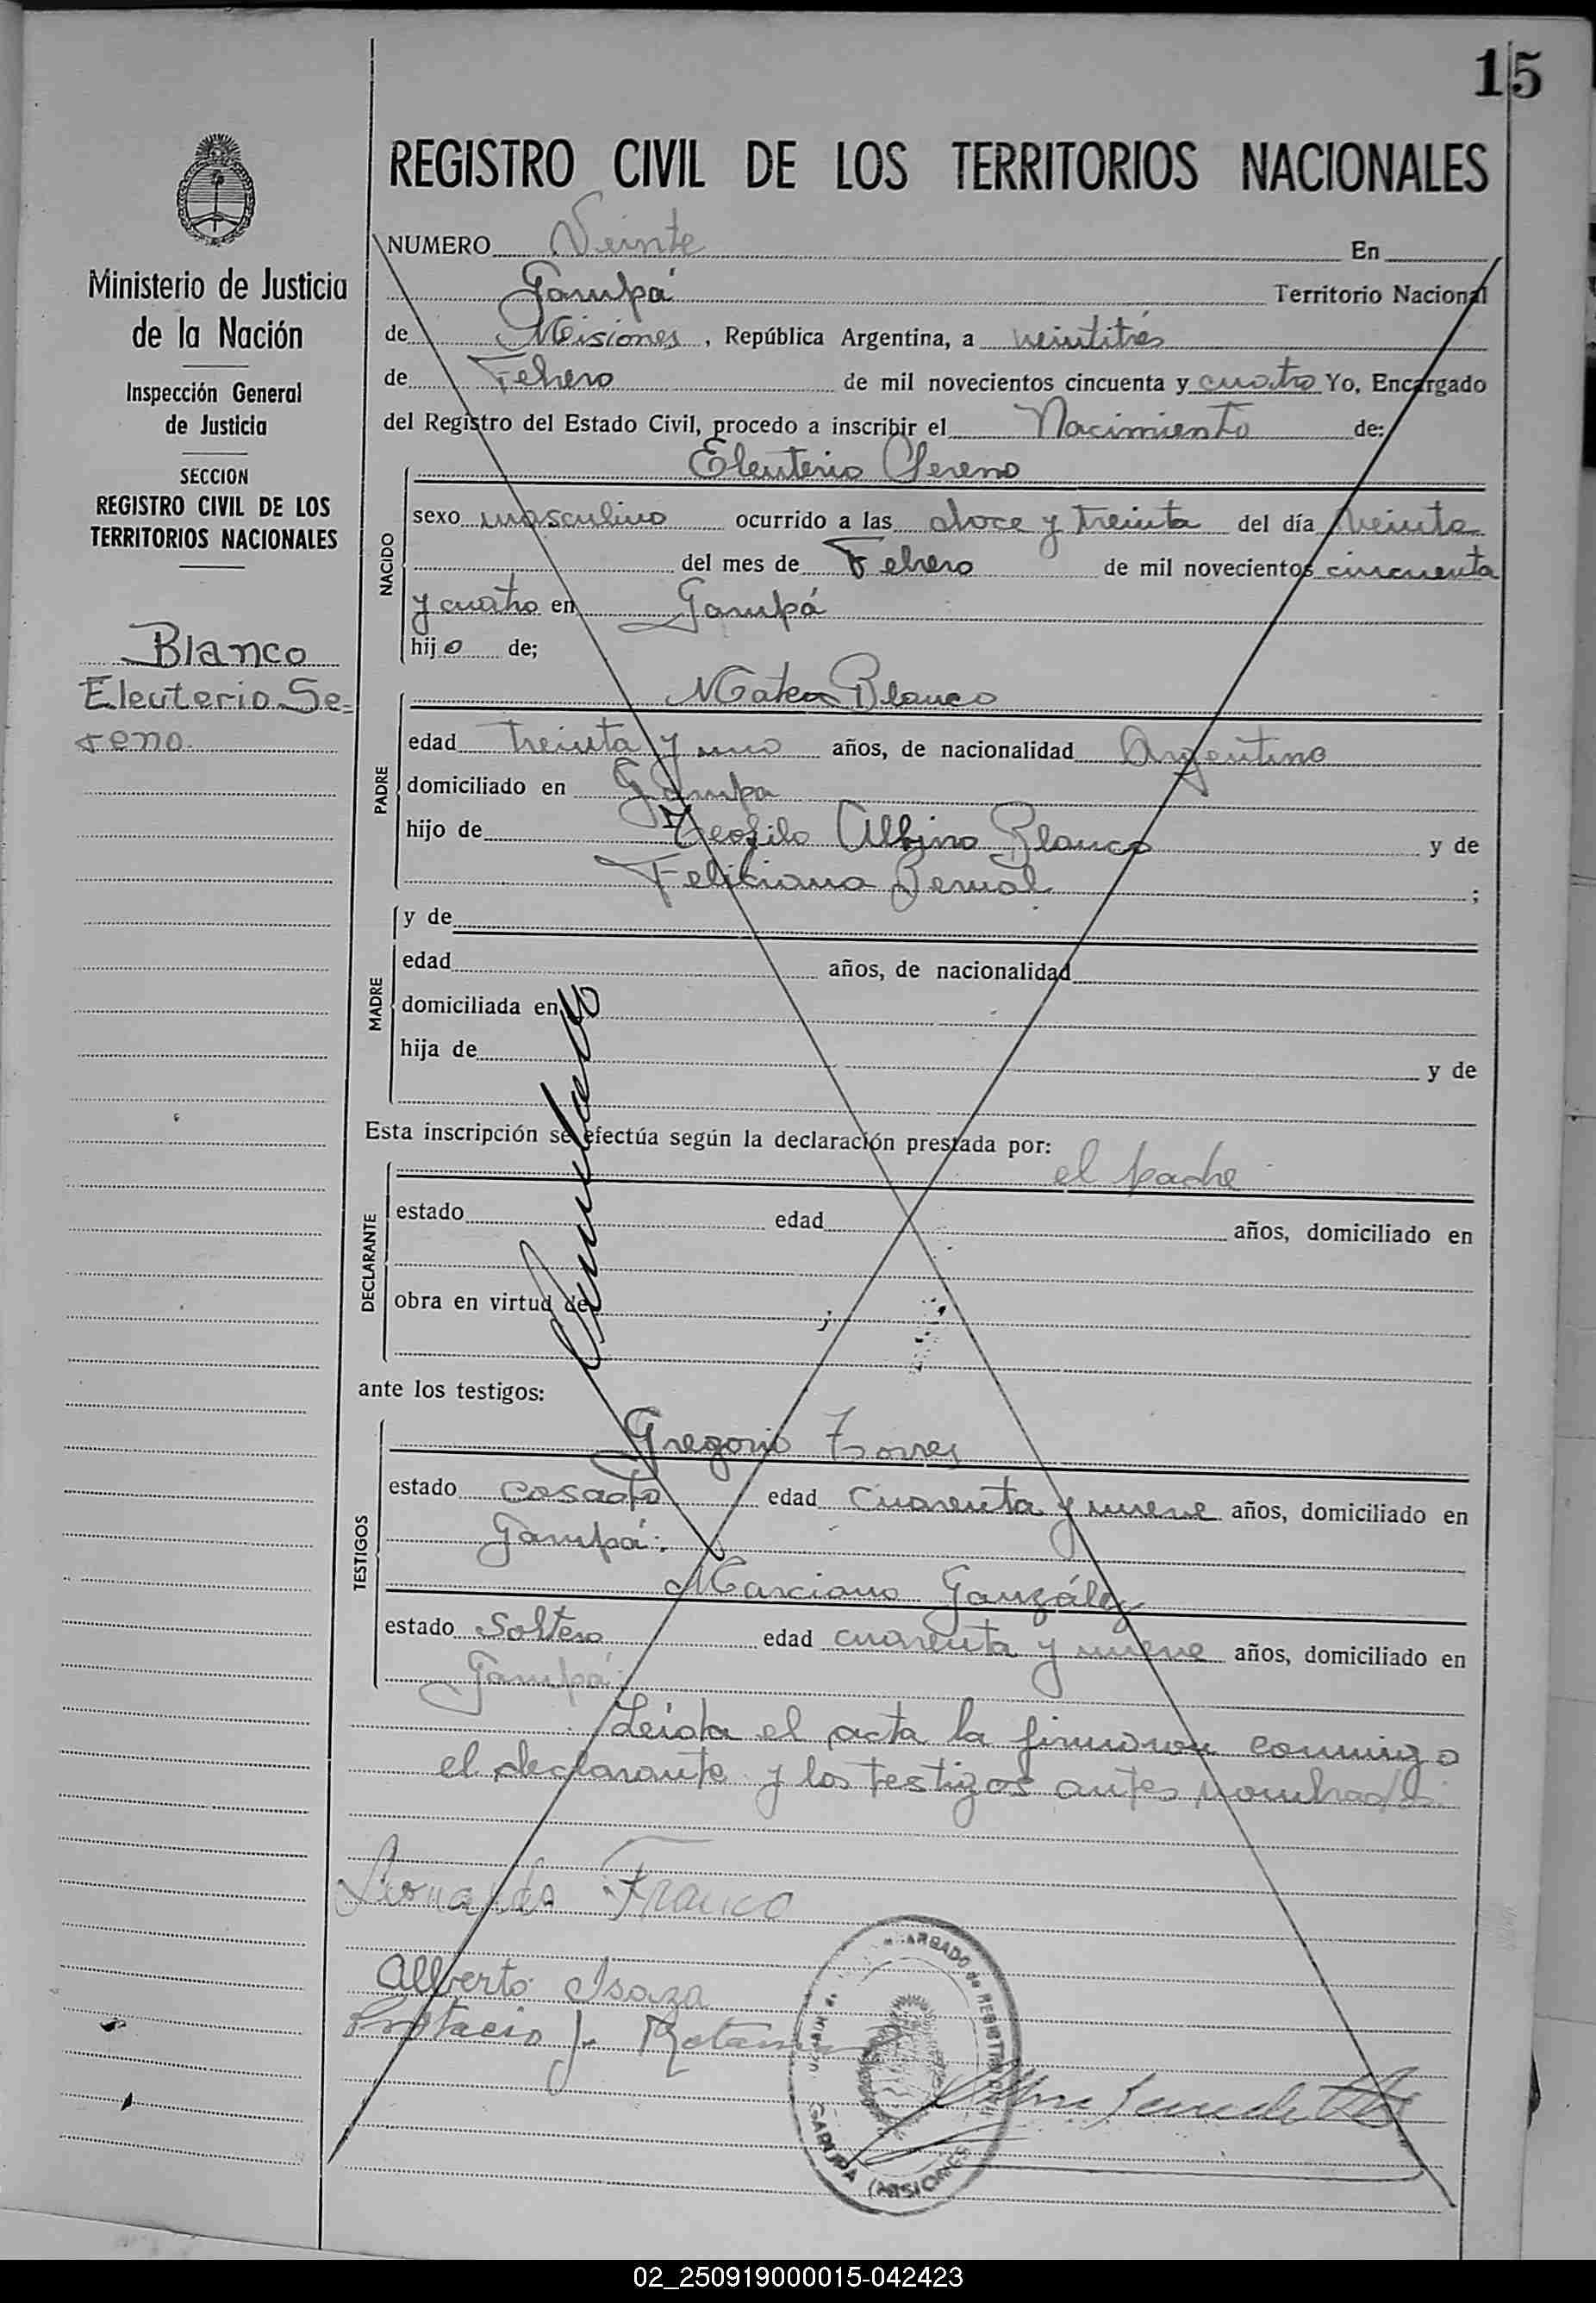 15
REGISTRO CIVIL DE LOS TERRITORIOS NACIONALES
Ministerio de Justicia
de la Nación
Inspección General
de Justicia
SECCION
REGISTRO CIVIL DE LOS
TERRITORIOS NACIONALES
Blanco
Eleuterio Se=
reno.
NUMERO Veinte En
Garupá Territorio Nacional
de Misiones, República Argentina, a veintitrés
de Febrero de mil novecientos cincuenta y cuatro Yo, Encargado
del Registro del Estado Civil, procedo a inscribir el Nacimiento de:
NACIDO
Eleuterio Sereno
sexo masculino ocurrido a las doce y treinta del día veinte
del mes de Febrero de mil novecientos cincuenta
y cuatro en Garupá
hijo de;
PADRE
Mateo Blanco
edad treinta y uno años, de nacionalidad Argentino
domiciliado en Garupa
hijo de Teofilo Albino Blanco y de
Feliciana Bernal ;
MADRE
y de
edad años, de nacionalidad
domiciliada en
hija de y de
Anulado
Esta inscripción se efectúa según la declaración prestada por:
el padre
DECLARANTE
estado edad años, domiciliado en
obra en virtud de
;
ante los testigos:
TESTIGOS
Gregorio Torres
estado casado edad cuarenta y nueve años, domiciliado en
Garupá.
Marciano González
estado Soltero edad cuarenta y nueve años, domiciliado en
Garupá.
Leida el acta la firmaron conmigo
el declarante y los testigos antes nombrados.
Franco
Alberto Isaza
Protacio J.
ARGADO de REGISTRO
GARUPA (MISIONES
02_250919000015-042423